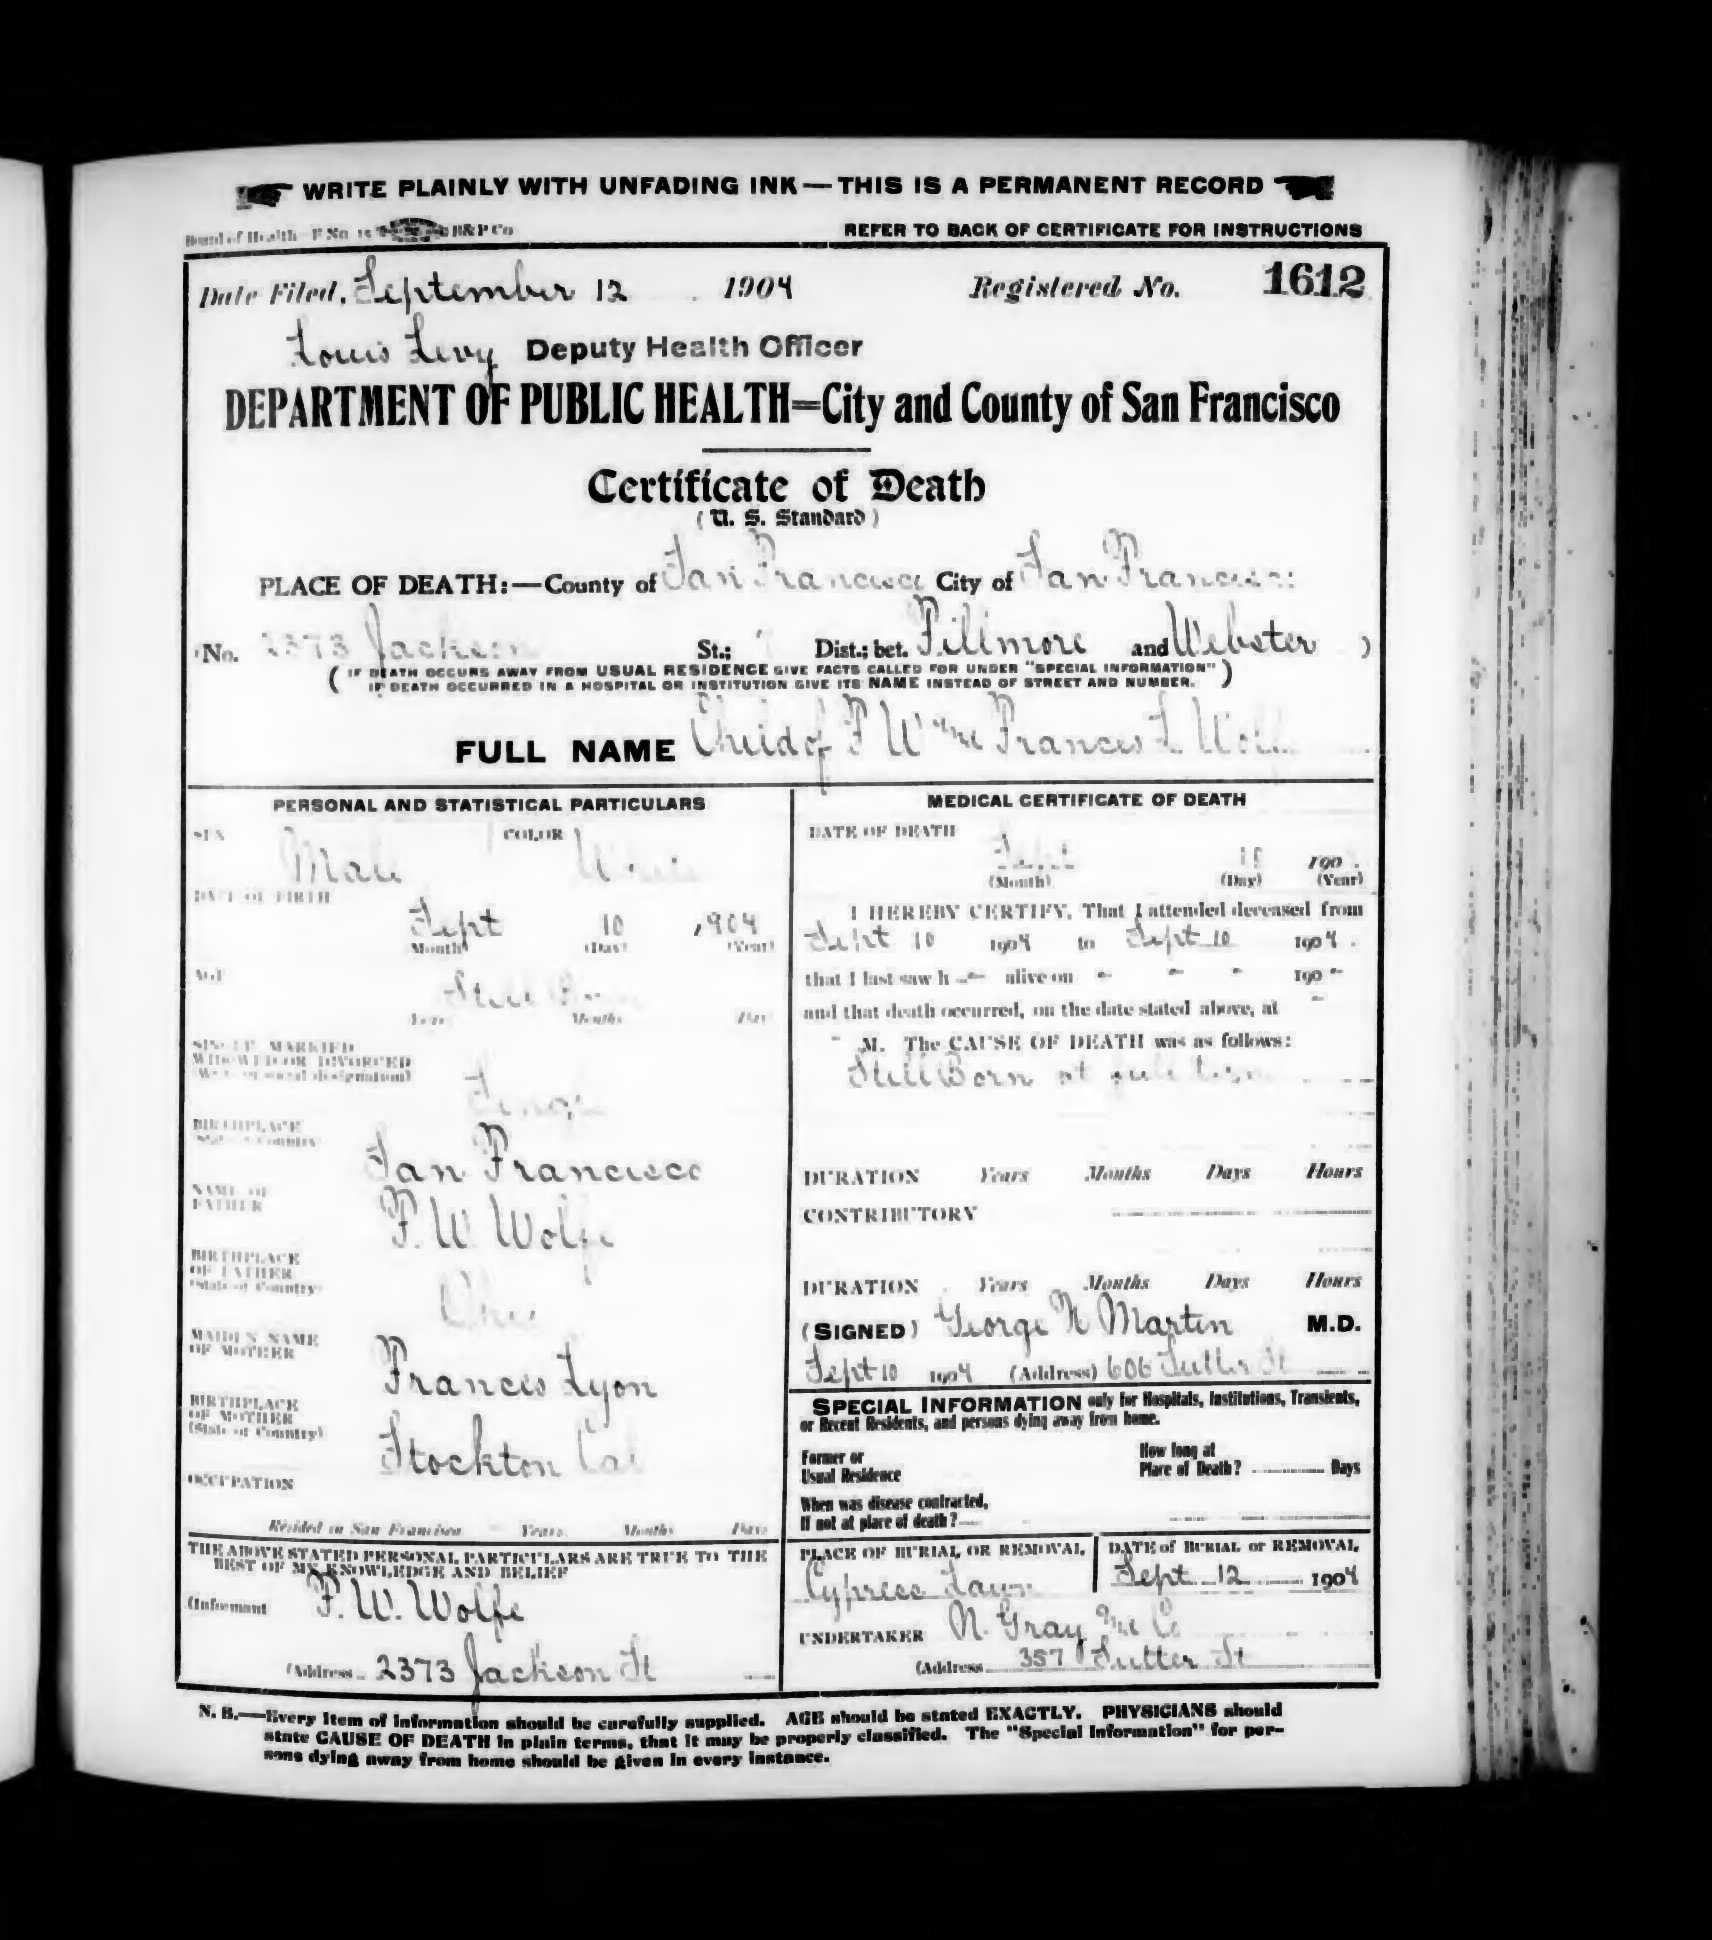 WRITE PLAINLY WITH UNFADING INK — THIS IS A PERMANENT RECORD
Board of Health—F No. 15 B&P Co
REFER TO BACK OF CERTIFICATE FOR INSTRUCTIONS
Date Filed, September 12 1904 Registered No. 1612
Louis Levy Deputy Health Officer
DEPARTMENT OF PUBLIC HEALTH=City and County of San Francisco
Certificate of Death
(U. S. Standard)
PLACE OF DEATH:—County of San Francisco City of San Francisco
(No. 2373 Jackson St.; Dist.; bet. Fillmore and Webster )
( IF DEATH OCCURS AWAY FROM USUAL RESIDENCE GIVE FACTS CALLED FOR UNDER "SPECIAL INFORMATION" )
IF DEATH OCCURRED IN A HOSPITAL OR INSTITUTION GIVE ITS NAME INSTEAD OF STREET AND NUMBER.
FULL NAME Child of F W and Frances L Wolfe
PERSONAL AND STATISTICAL PARTICULARS
SEX Male COLOR White
DATE OF BIRTH
Sept 10 1904
(Month) (Day) (Year)
AGE
Still Born
Years Months Days
SINGLE, MARRIED
WIDOWED OR DIVORCED
(Write in social designation)
Single
BIRTHPLACE
(State or Country)
San Francisco
NAME OF
FATHER
F. W. Wolfe
BIRTHPLACE
OF FATHER
(State or Country)
Ohio
MAIDEN NAME
OF MOTHER
Frances Lyon
BIRTHPLACE
OF MOTHER
(State or Country)
Stockton Cal
OCCUPATION
Resided in San Francisco Years Months Days
THE ABOVE STATED PERSONAL PARTICULARS ARE TRUE TO THE
BEST OF MY KNOWLEDGE AND BELIEF
(Informant F. W. Wolfe
(Address 2373 Jackson St
MEDICAL CERTIFICATE OF DEATH
DATE OF DEATH
Sept 10 190
(Month) (Day) (Year)
I HEREBY CERTIFY, That I attended deceased from
Sept 10 1904 to Sept 10 1904.
that I last saw h — alive on " " " 190 "
and that death occurred, on the date stated above, at "
" M. The CAUSE OF DEATH was as follows:
Still Born at full term
DURATION Years Months Days Hours
CONTRIBUTORY
DURATION Years Months Days Hours
(SIGNED) George N Martin M.D.
Sept 10 1904 (Address) 606 Sutter St
SPECIAL INFORMATION only for Hospitals, Institutions, Transients,
or Recent Residents, and persons dying away from home.
Former or
Usual Residence
How long at
Place of Death? Days
When was disease contracted,
If not at place of death?
PLACE OF BURIAL OR REMOVAL
Cypress Lawn
DATE of BURIAL or REMOVAL
Sept 12 1904
UNDERTAKER N. Gray and Co
(Address 357 Sutter St
N. B.—Every item of information should be carefully supplied. AGE should be stated EXACTLY. PHYSICIANS should
state CAUSE OF DEATH in plain terms, that it may be properly classified. The "Special Information" for per-
sons dying away from home should be given in every instance.